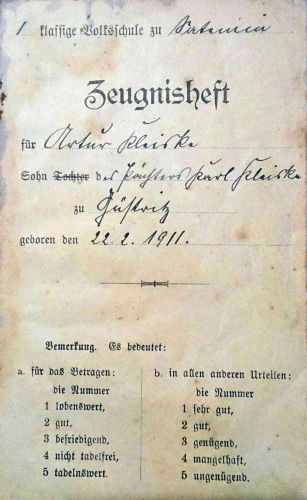 1 klassige Volksschule zu Satemin
Zeugnisheft
für Artur Kleiske
Sohn Tochter des Pächters Karl Kleiske
zu Güstritz
geboren den 22. 2. 1911.
Bemerkung. Es bedeutet:
a. für das Betragen:
die Nummer
1 lobenswert,
2 gut,
3 befriedigend,
4 nicht tadelfrei,
5 tadelnswert.
b. in allen anderen Urteilen:
die Nummer
1 sehr gut,
2 gut,
3 genügend,
4 mangelhaft,
5 ungenügend.